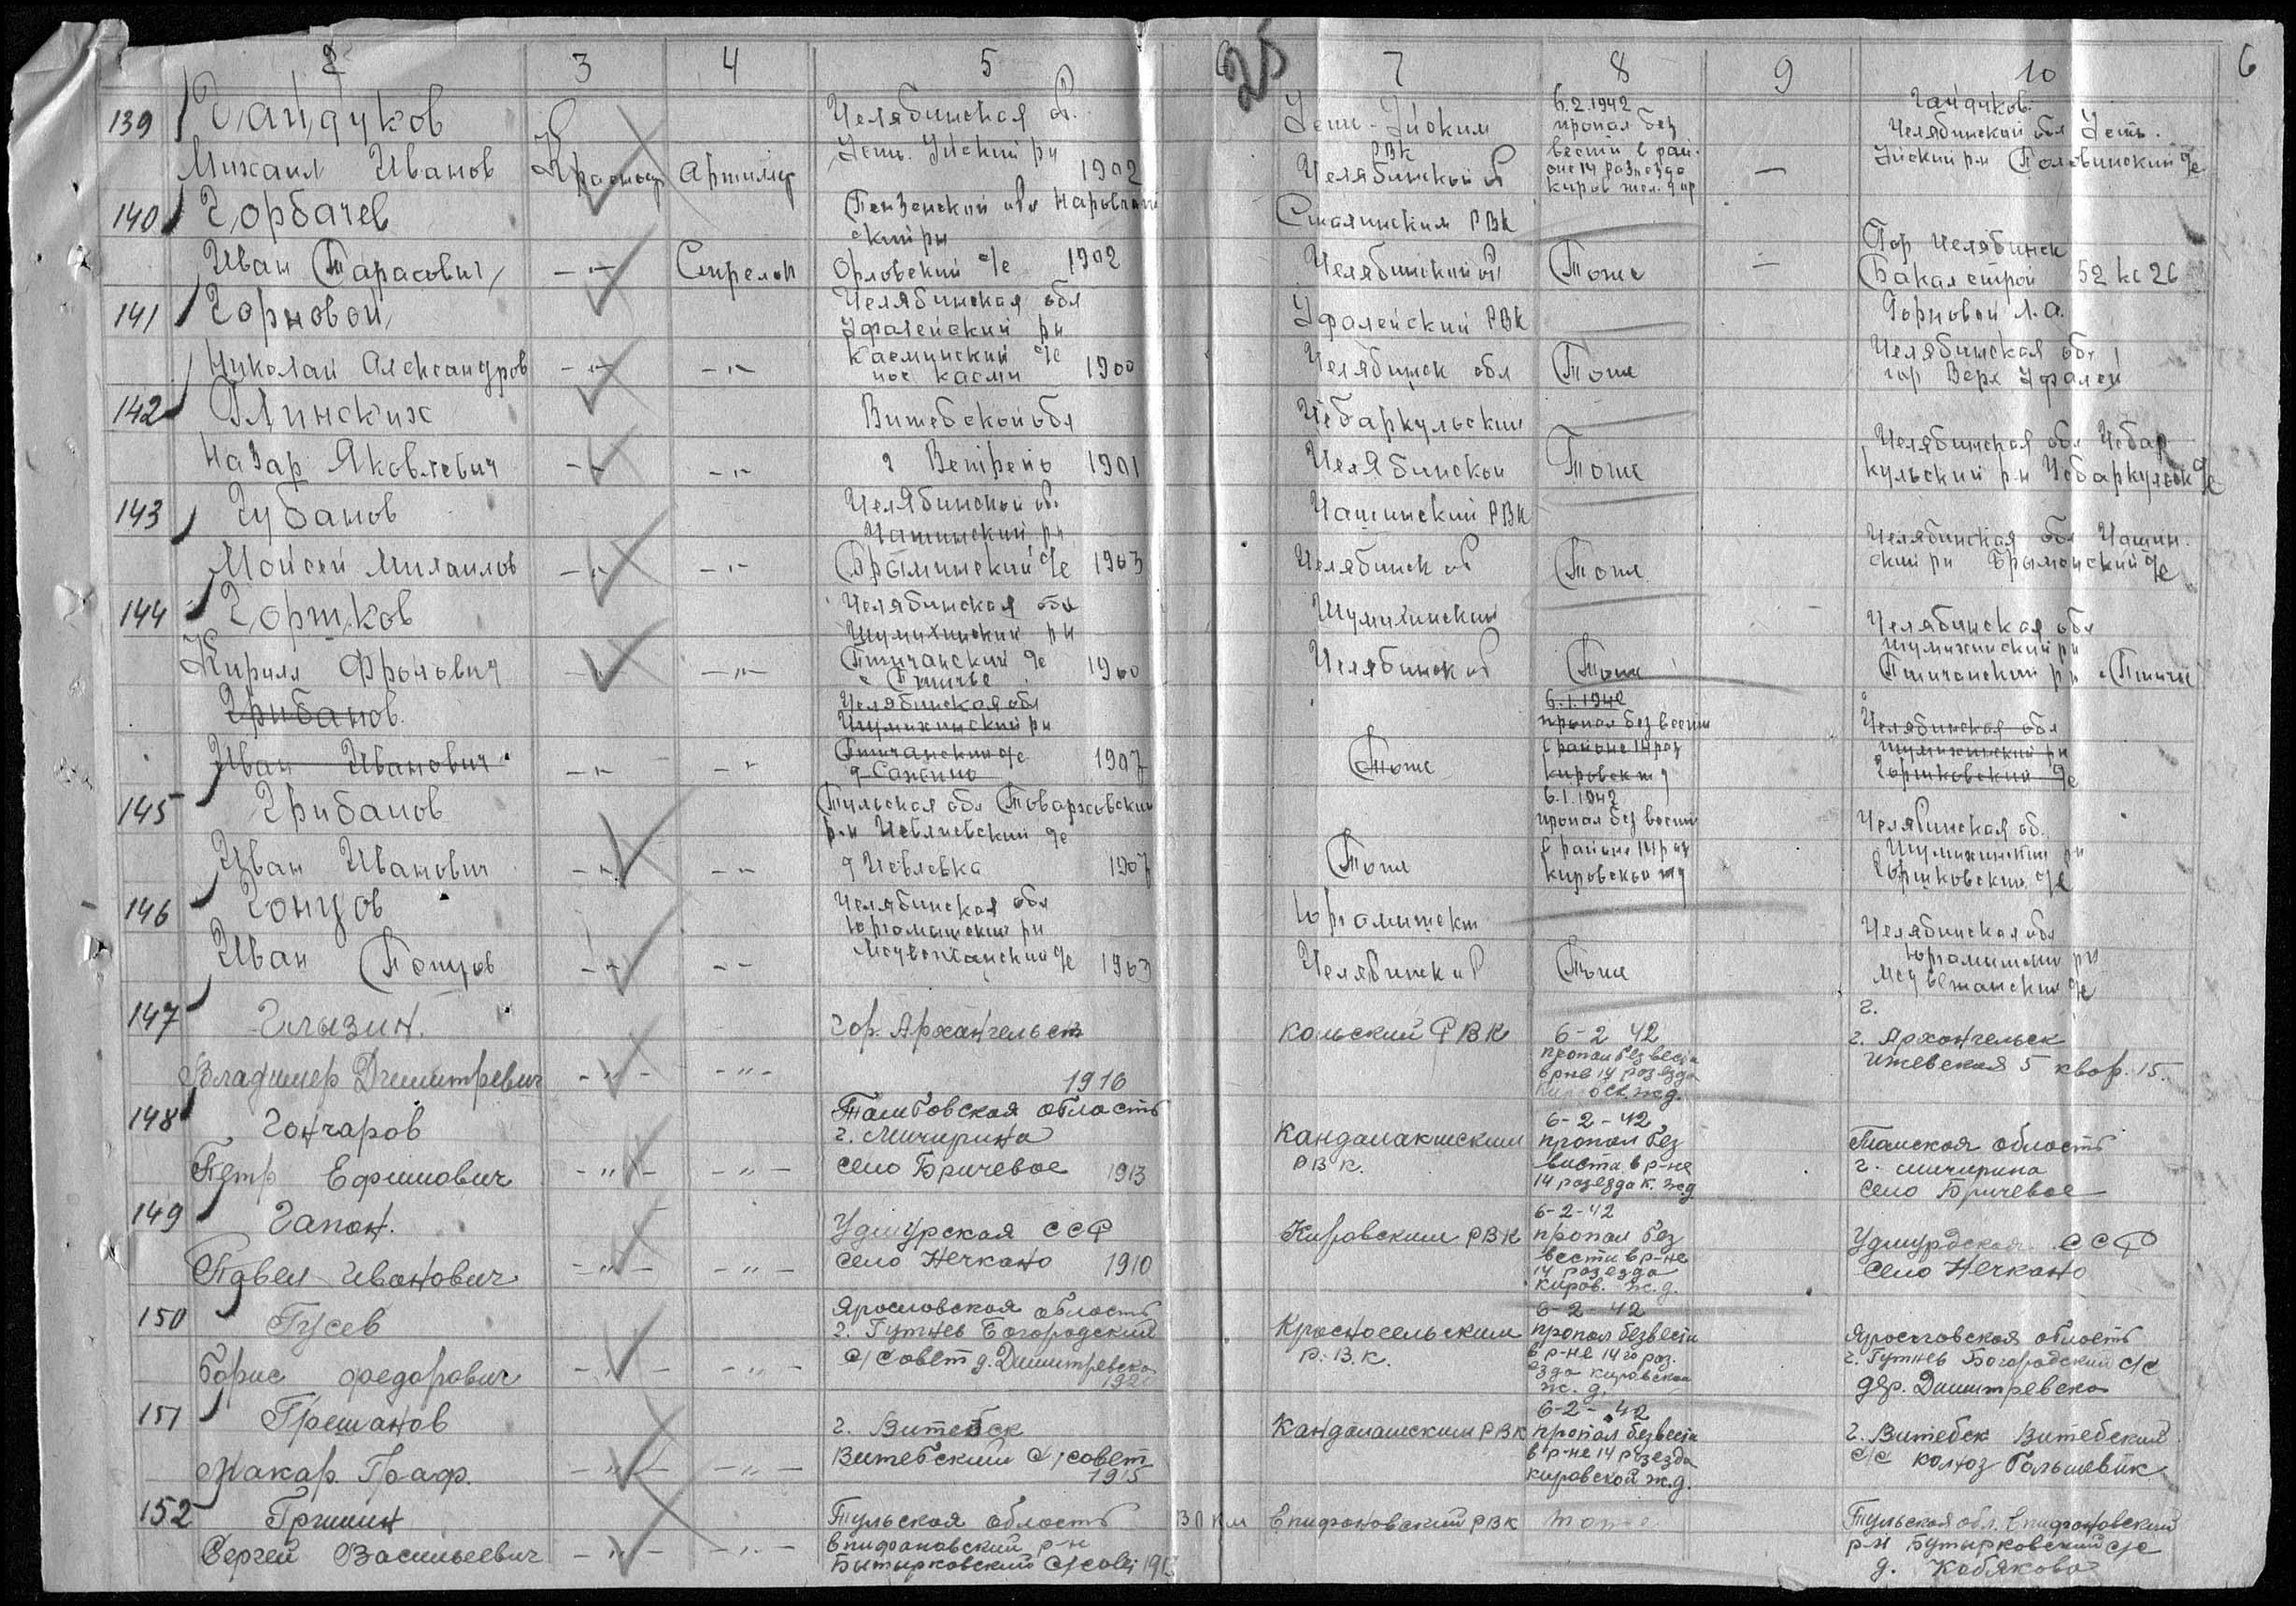 2 3 4 5 25 7 8 9 10 6
139 Гайдуков
Михаил Иванов
Красноар
Артилер
Челябинская об.
Усть. Уйский рн
1902
Усть-Уйским
РВК
Челябинской об
6.2.1942
пропал без
вести в рай.
оне 14 разъезда
Киров жел. дор
—
Гайдуков.
Челябинской обл Усть.
Уйский р-н Половинский с/с
140 Горбачев
Иван Тарасович
—"—
Стрелок
Пензенской обл Наровчат
ский рн
Орловский с/с 1902
Сталинским РВК
Челябинской об
Тоже
—
Гор Челябинск
Бакалстрой 52 кв 26
141 Горновой
Николай Александров
—"—
—"—
Челябинская обл
Уфалейский рн
Каслинский с/с
пос Касли 1900
Уфалейский РВК
Челябинск обл
Тоже
Горновой Л.А.
Челябинская обл
гор Верх Уфалей
142 Глинских
Назар Яковлевич
—"—
—"—
Витебской обл
1901
Чебаркульский
Челябинской
Тоже
Челябинская обл Чебар
кульский р-н Чебаркульск с/с
143 Губанов
Мойсей Михаилов
—"—
—"—
Челябинской об.
Чашинский рн
Брылинский с/с 1903
Чашинский РВК
Челябинск об
Тоже
Челябинская обл Чашин.
ский рн с/с
144 Горшков
Кирилл Фролович
—"—
—"—
Челябинская обл
Шумихинский рн
Птичанский с/с
с Птичье 1900
Шумихинский
Челябинск об
Тоже
Челябинская обл
Шумихинский рн
Птичанский рн с Птичье
Грибанов.
Иван Иванович
—"—
—"—
Челябинская обл
Шумихинский рн
Птичанский с/с
1907
Тоже
6.1.1942
пропал без вести
в районе 14 раз
кировск жд
Челябинская обл
Шумихинский рн
Горшковский с/с
145 Грибанов
Иван Иванович
—"—
—"—
Тульская обл Товарковский
р-н Иевлевский с/с
д Иевлевка 1907
Тоже
6.1.1942
пропал без вести
в районе 14 раз
кировской жд
Челябинская об.
Шумихинский рн
Горшковский с/с
146 Гонцов
Иван
—"—
—"—
Челябинская обл
Юргамышский рн
с/с 1903
Юргамышск
Челябинск об
Тоже
Челябинская обл
Юргамышский рн
с/с
147 Глызин.
Владимер Дмитревич
—"—
—"—
гор. Архангельск
1916
Кольский РВК
6-2 42
пропал без вести
в рне 14 розезда
Кировск. жд.
г.
г. Архангельск
Ижевская 5 квар. 15.
148 Гончаров
Петр Ефимович
—"—
—"—
Тамбовская область
г. Мичурина
село Бричевое 1913
Кандалакшским
РВК.
6-2-42
пропал без
виста в р-не
14 розезда к. жд
Тамская область
г. Мичурина
село Бричевое
149 Гапон.
Павел Иванович
—"—
—"—
Удмурская ССР
село Нечкано 1910
Кировским РВК
6-2-42
пропал без
вести в р-не
14 розезда
Киров. ж.д.
Удмурдская ССР
село Нечкано
150 Гусев
Борис Федорович
—"—
—"—
Ярословская область
г. Гутнев Богородский
с/совет д. Дмитревско
Красносельским
Р.В.К.
6-2-42
пропал без вести
в р-не 14го раз.
езда кировской
ж.д.
Ярословская область
г. Гутнев Богородский с/с
дер. Дмитревско
151 Грешанов
Макар. Граф.
—"—
—"—
г. Витебск
Витебский с/совет
1915
Кандалашским РВК
6-2-42
пропал без вести
в р-не 14 розезда
кировской ж.д.
г. Витебск Витебский
с/с колхоз Большевик
152 Гришин
Сергей Васильевич
—"—
—"—
Тульская область
Епифановский р-н
Бытырковский с/совет
Епифановский РВК
тоже
Тульская обл. Епифановский
р-н Бутырковский с/с
д. Кобяково